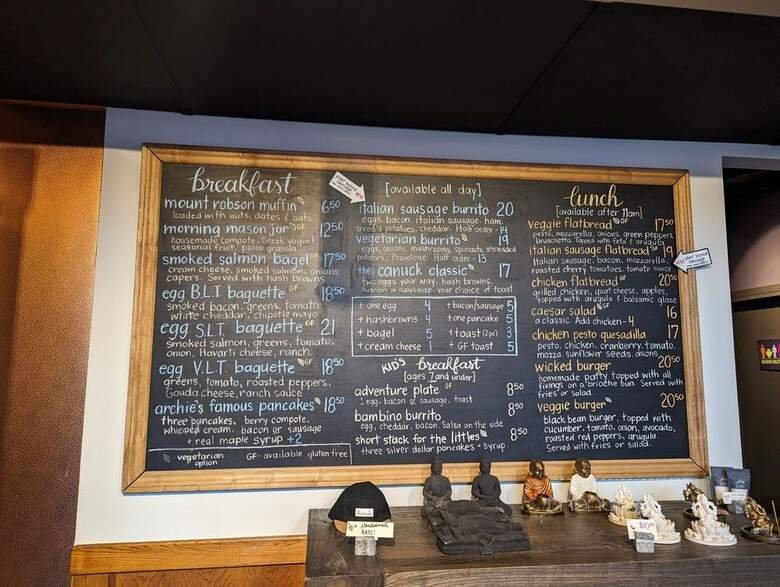 breakfast
mount robson muffin 6⁵⁰
loaded with nuts, dates & oats
morning mason jar GF 12⁵⁰
housemade compote, Greek yogurt,
seasonal fruit, paleo granola
smoked salmon bagel GF 17⁵⁰
cream cheese, smoked salmon, onions,
capers. Served with hash browns
egg B.L.T baguette GF 18⁵⁰
smoked bacon, greens, tomato,
white cheddar, chipotle mayo
egg S.L.T baguette GF 21
smoked salmon, greens, tomato,
onion, Havarti cheese, ranch.
egg V.L.T baguette GF 18⁵⁰
greens, tomato, roasted peppers,
Gouda cheese, ranch sauce
archie's famous pancakes 18⁵⁰
three pancakes, berry compote,
whipped cream. bacon or sausage
+ real maple syrup +2
vegetarian option
GF - available gluten free
[available all day]
italian sausage burrito 20
eggs, bacon, italian sausage, ham,
shred'd potatoes, cheddar. Half order - 14
vegetarian burrito 19
eggs, onions, mushrooms, spinach, shredded
potatoes, Provolone. Half order - 13
the canuck classic 17
two eggs your way, hash browns,
bacon or sausage, your choice of toast
+ one egg 4
+ hashbrowns 4
+ bagel 5
+ cream cheese 1
+ bacon/sausage 5
+ one pancake 5
+ toast (2pc) 3
+ GF toast 5
KID'S breakfast
[ages 7 and under]
adventure plate GF 8⁵⁰
1 egg, bacon or sausage, toast
bambino burrito 8⁵⁰
egg, cheddar, bacon. Salsa on the side
short stack for the littles 8⁵⁰
three silver dollar pancakes + syrup.
lunch
[available after 11am]
veggie flatbread GF 17⁵⁰
pesto, mozzarella, onions, green peppers,
bruschetta. Topped with feta & arugula
italian sausage flatbread GF 19
Italian sausage, bacon, mozzarella,
roasted cherry tomatoes, tomato sauce
chicken flatbread GF 20⁵⁰
grilled chicken, goat cheese, apples,
topped with arugula & balsamic glaze
caesar salad GF 16
a classic. Add chicken - 4
chicken pesto quesadilla 17
pesto, chicken, cranberry, tomato,
mozza, sunflower seeds, onions
wicked burger 20⁵⁰
homemade patty topped with all
fixings on a brioche bun. Served with
fries or salad.
veggie burger 20⁵⁰
black bean burger, topped with
cucumber, tomato, onion, avocado,
roasted red peppers, arugula.
Served with fries or salad.
HATS!
$10